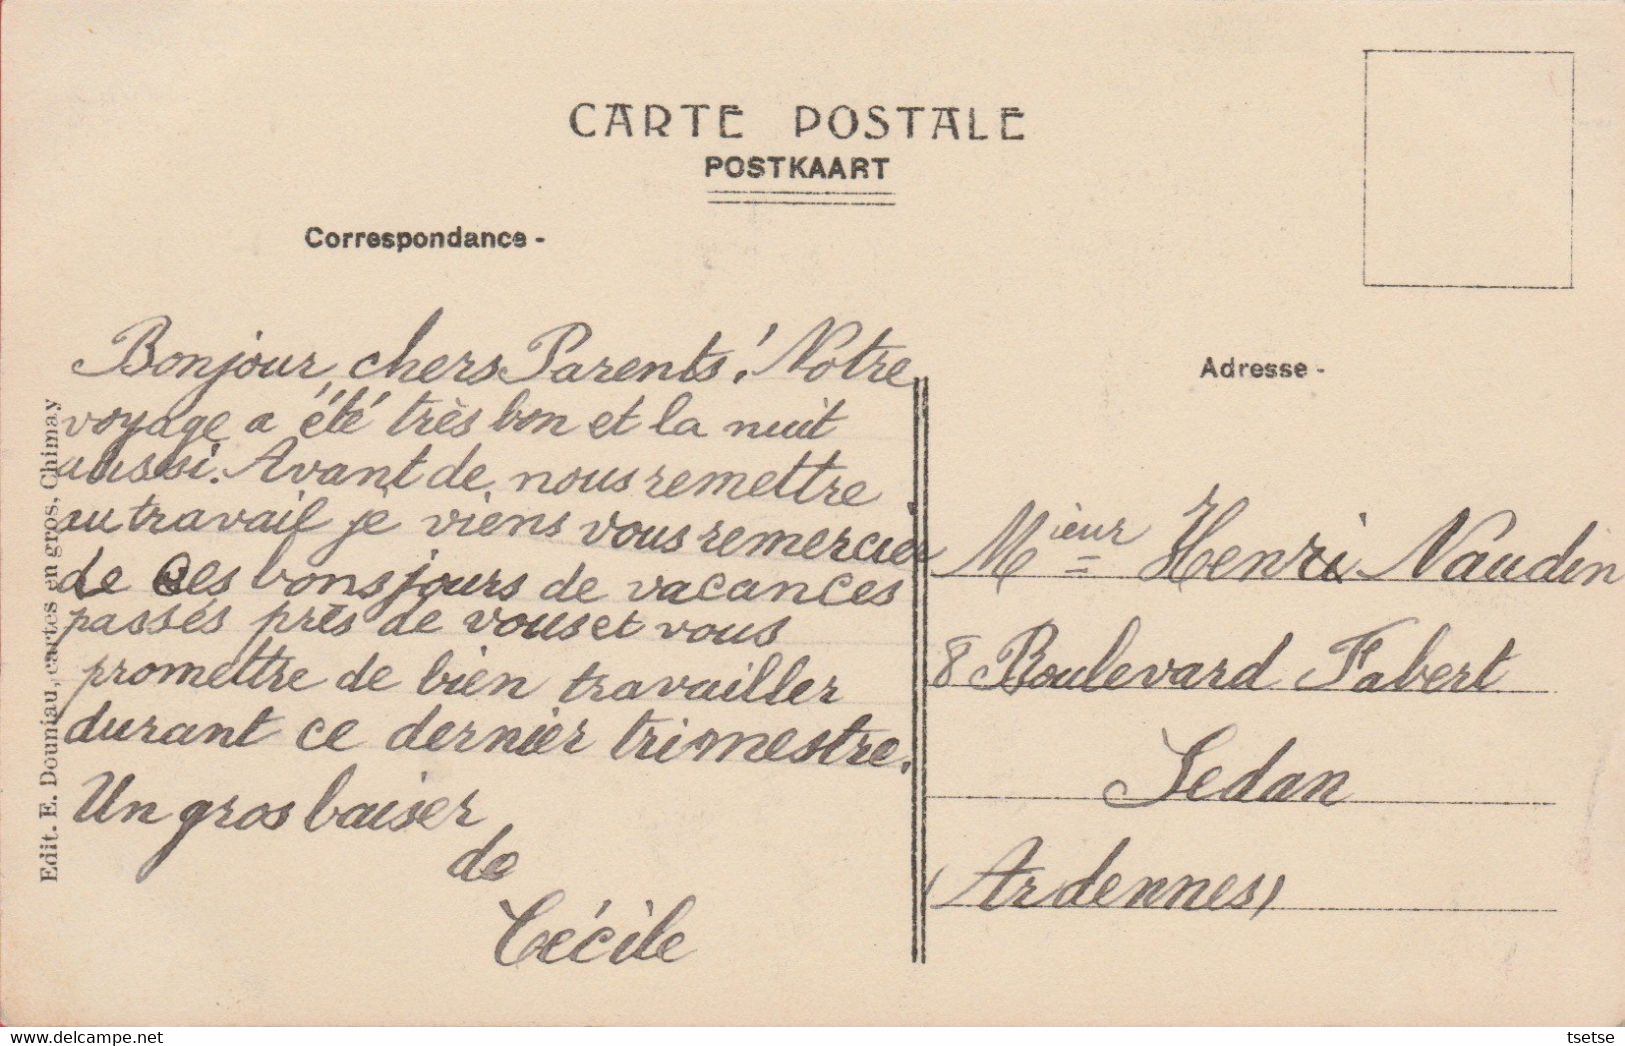 CARTE POSTALE
POSTKAART
Correspondance -
Bonjour, chers Parents! Notre
voyage a été très bon et la nuit
aussi. Avant de nous remettre
au travail je viens vous remercier
de ces bons jours de vacances
passés près de vous et vous
promettre de bien travailler
durant ce dernier trimestre.
Un gros baiser
de
Cécile
Edit. E. Douniau, cartes en gros, Chimay
Adresse -
Mieur Henri Naudin
8 Boulevard Fabert
Sedan
(Ardennes)
tsetse